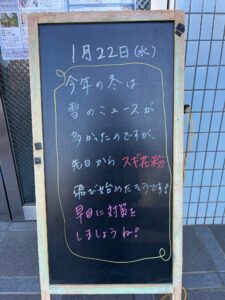 1月22日(水)
今年の冬は
雪のニュースが
多かったのですが、
先日からスギ花粉
飛び始めたそうです!
早目に対策を
しましょうね!